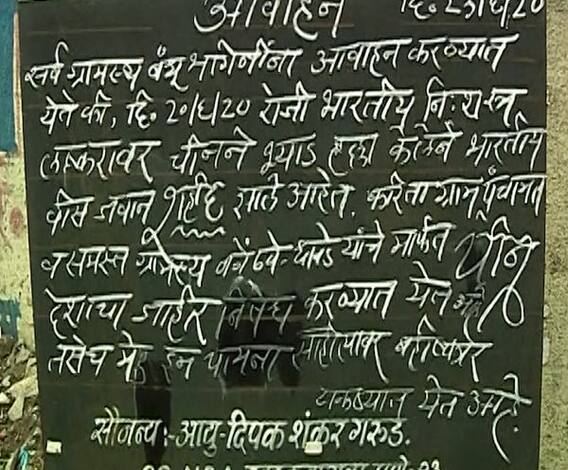 आवाहन दि. २३/६/२०
सर्व ग्रामस्थ बंधू भगिनींना आवाहन करण्यात
येते की, दि. २०/६/२० रोजी भारतीय निःशस्त्र
लष्करावर चीनने भ्याड हल्ला केलेने भारतीय
वीस जवान शहीद झाले आहेत. करिता ग्रामपंचायत
व समस्त ग्रामस्थ यांचे मार्फत चीन
देशाचा जाहीर निषेध करण्यात येत आहे
तसेच मेड इन चायना साहित्यावर बहीष्कार
टाकण्यात येत आहे.
सौजन्य:-आयु-दिपक शंकर गरुड.